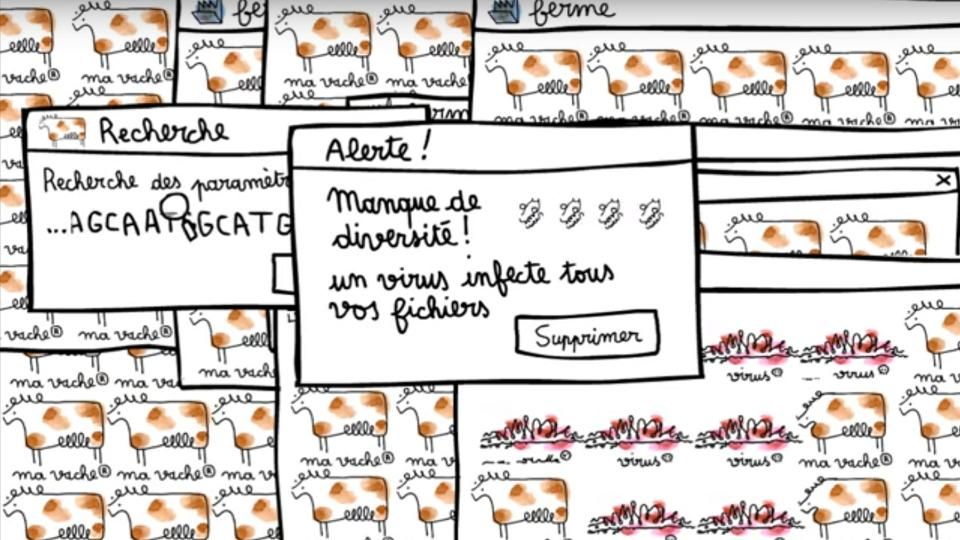 ferme
ma vache®
ma vache®
ma vache®
ma vache®
Recherche
Recherche des paramètr
...AGCAATGGCATG
Alerte !
Manque de
diversité !
un virus infecte tous
vos fichiers
Supprimer
ma vache®
ma vache®
virus
virus
ma vache®
ma vache®
ma vache®
ma vache®
virus
virus
ma vache®